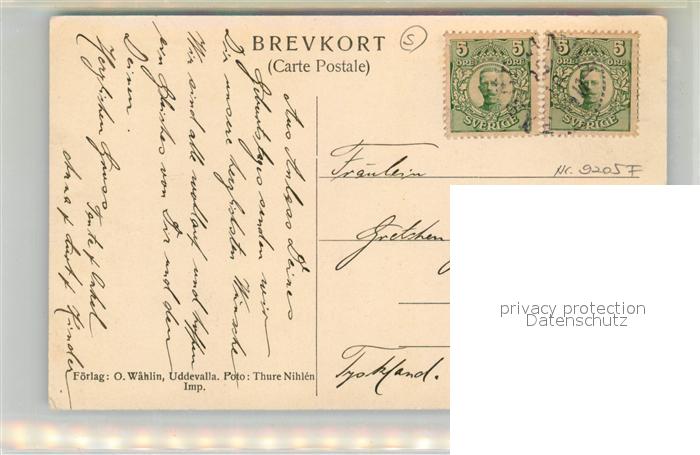 BREVKORT
(Carte Postale)
S
5 5
ÖRE ÖRE
SVERIGE
5 5
ÖRE ÖRE
SVERIGE
Aus Anlass Deines
Geburtstages senden wir
Dir unsere herzlichsten Wünsche
Wir sind alle wohlauf und hoffen
ein Gleiches von Dir und den
Deinen.
Herzlichen Gruss Tante & Onkel
Anna & Kurt & Kinder.
Fräulein
Nr. 9205F
Gretchen
Tyskland.
privacy protection
Datenschutz
Förlag: O. Wåhlin, Uddevalla. Foto: Thure Nihlén
Imp.